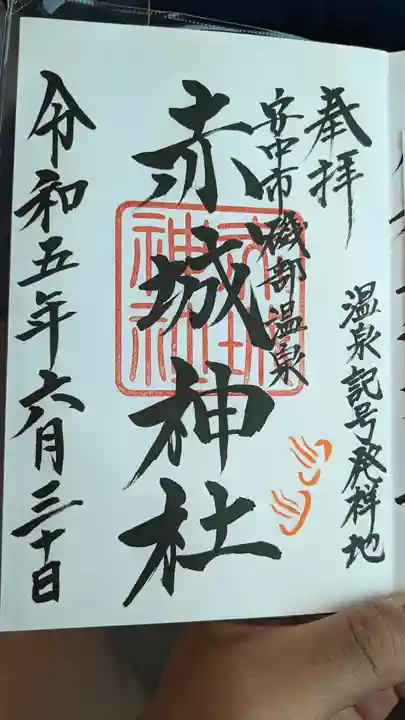 奉拝
温泉記号発祥地
安中市 磯部温泉
赤城神社
令和五年六月三十日